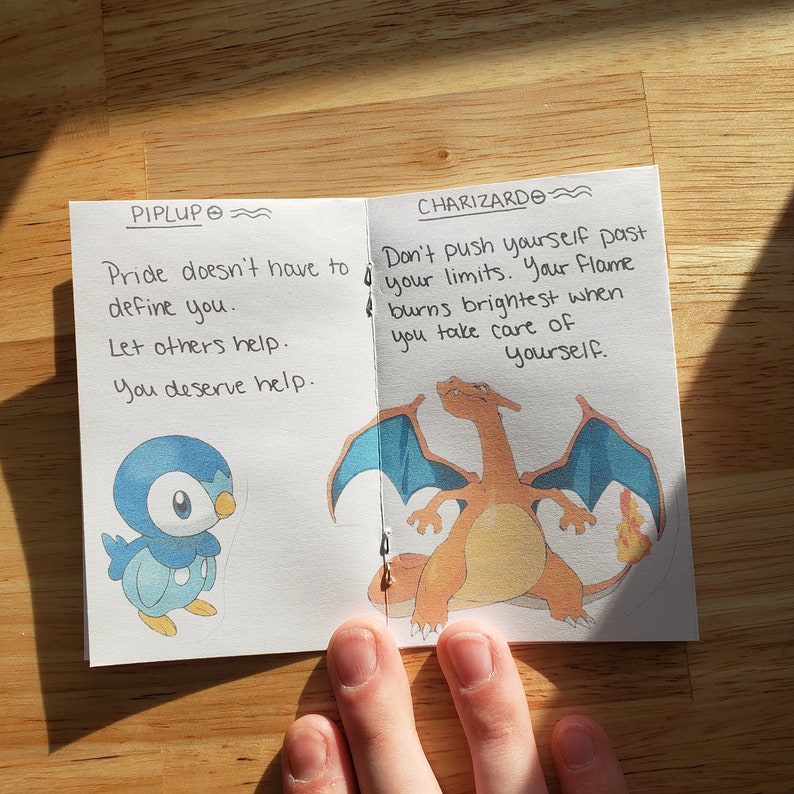 PIPLUP
Pride doesn't have to
define you.
Let others help.
You deserve help.
CHARIZARD
Don't push yourself past
your limits. Your flame
burns brightest when
you take care of
yourself.